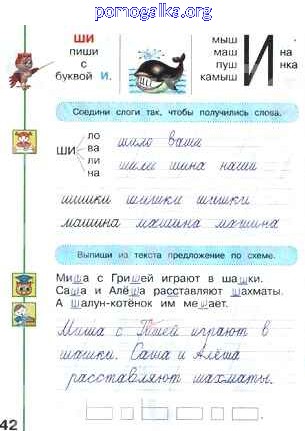 pomogalka.org
ШИ
пиши
с
буквой И.
мыш
маш
пуш
камыш
И
на
нка
Соедини слоги так, чтобы получились слова.
ШИ
ло
ва
ли
на
шило ваши
шили шина наши
шишки шишки шишки
машина машина машина
Выпиши из текста предложение по схеме.
Миша с Гришей играют в шашки.
Саша и Алёша расставляют шахматы.
А шалун-котёнок им мешает.
Миша с играют в
шашки. Саша и Алёша
расставляют шахматы.
42